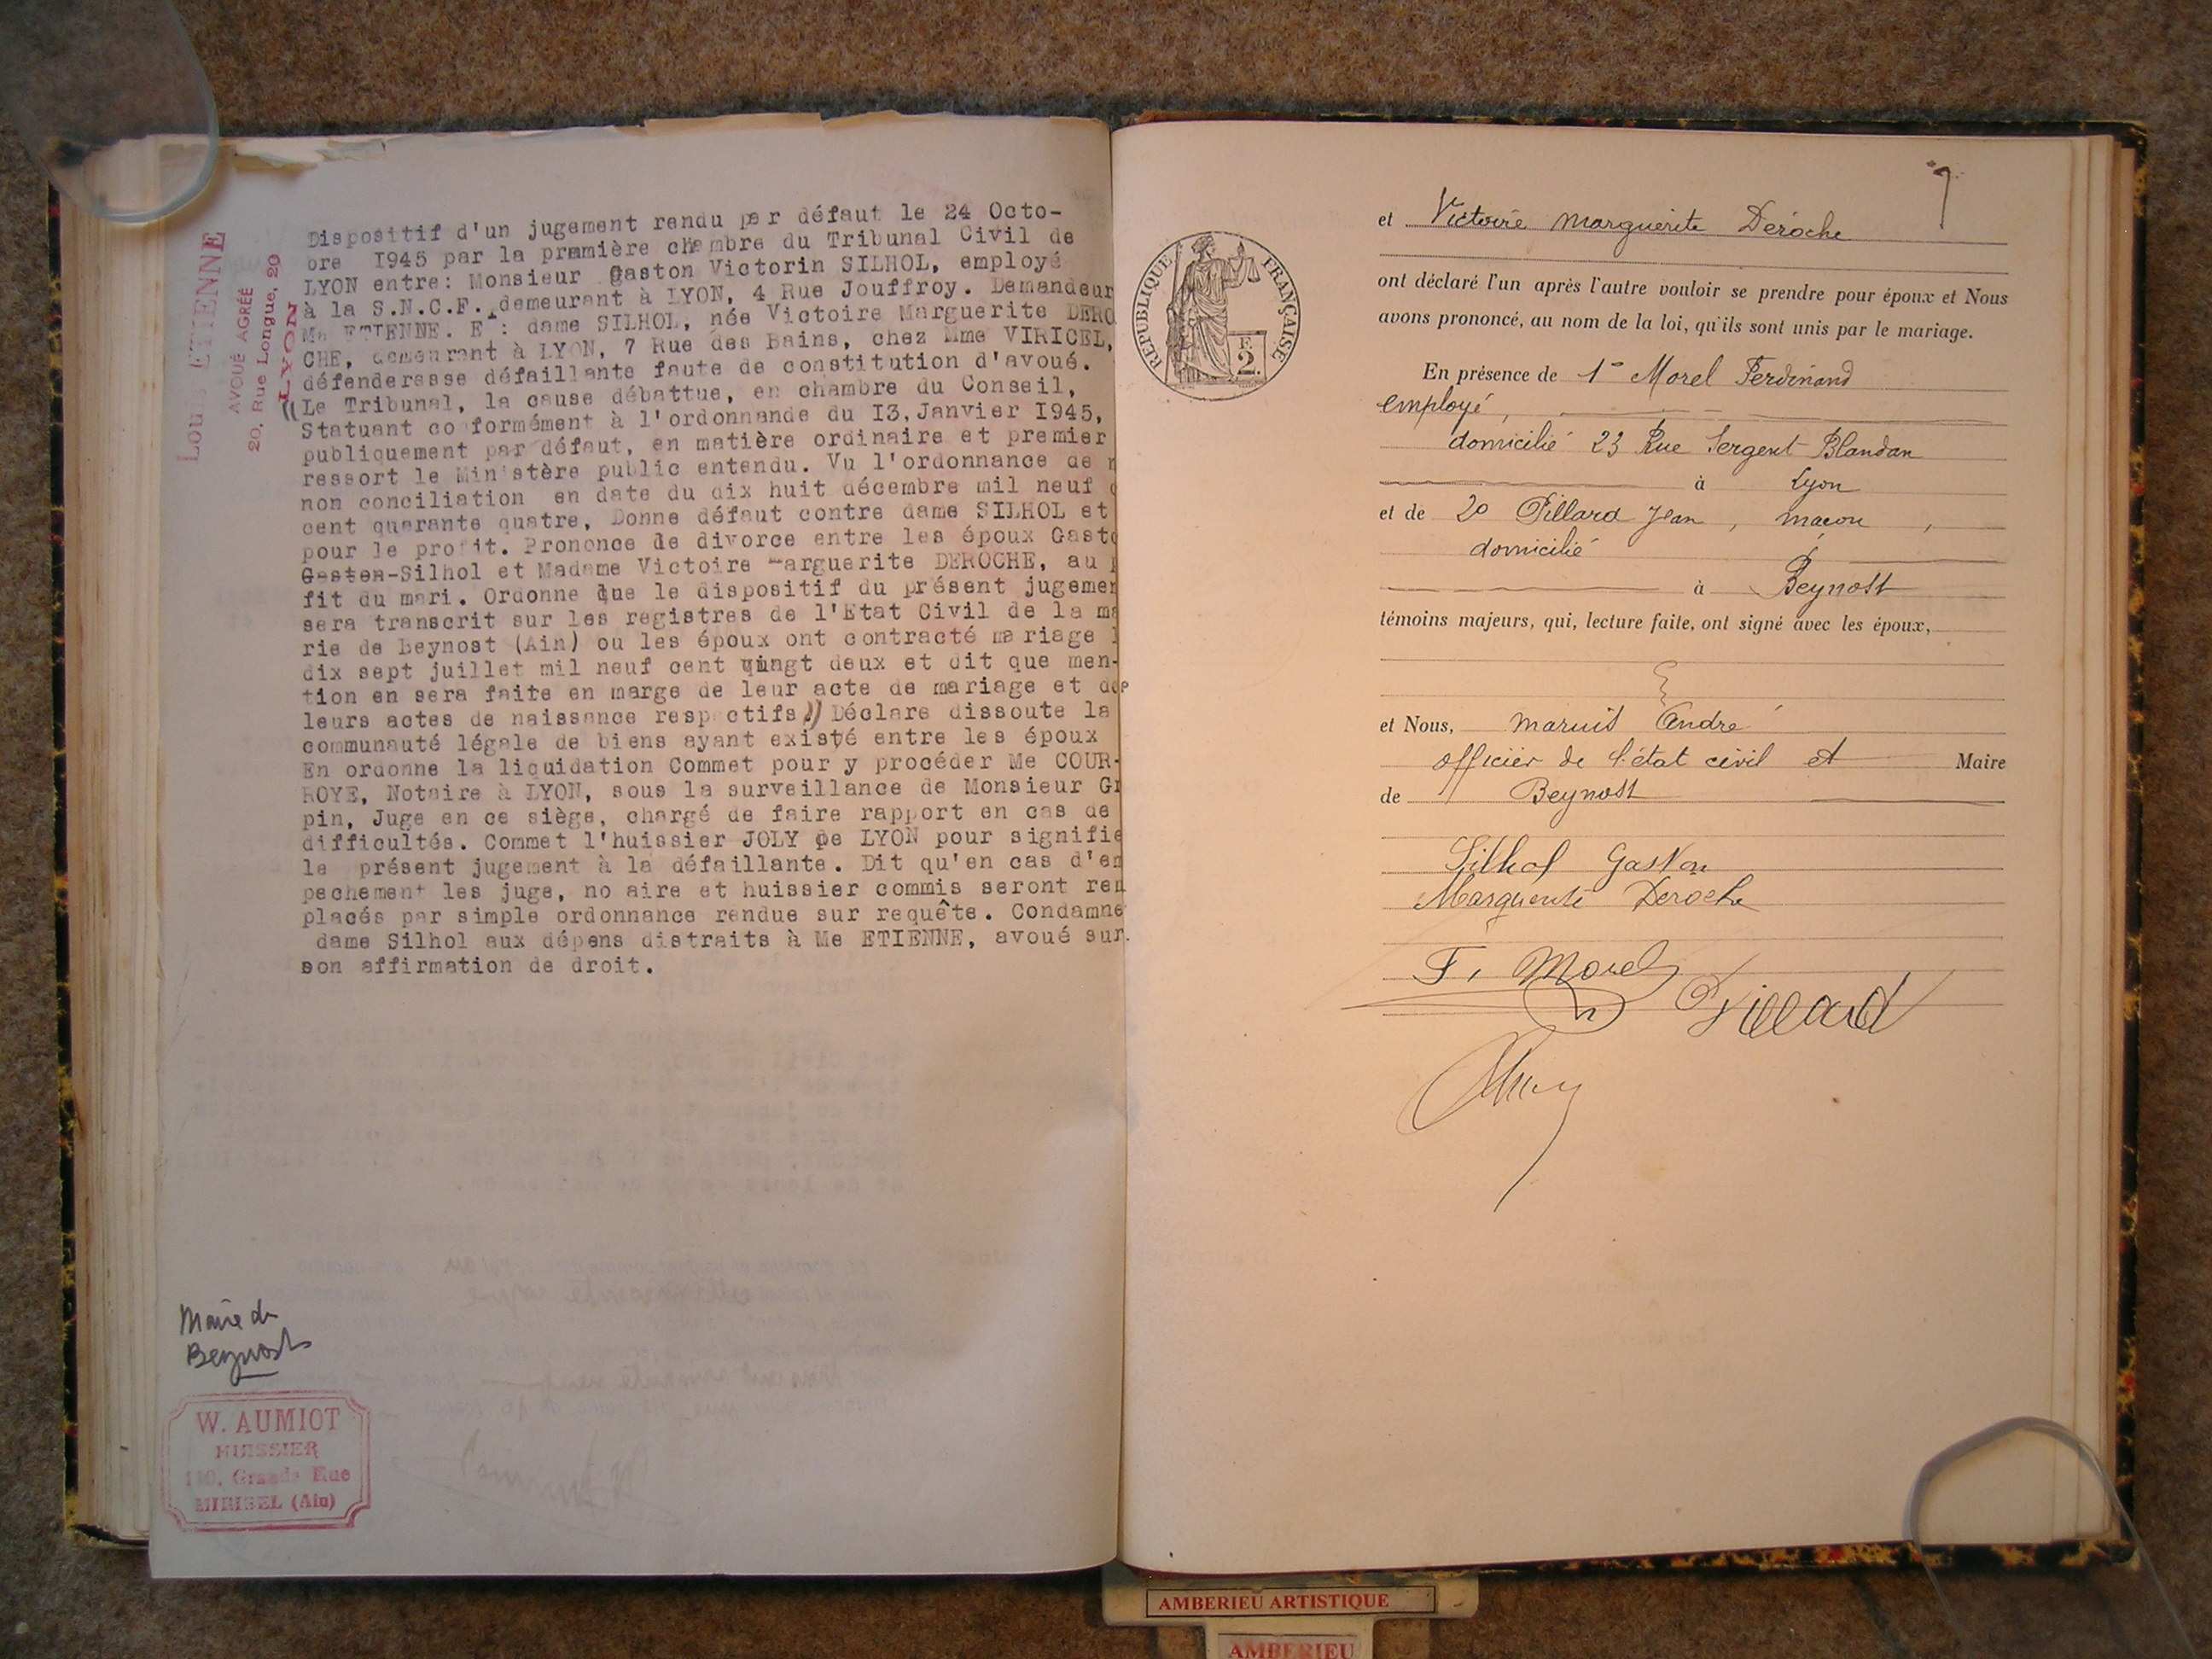 Louis ETIENNE
AVOUÉ AGRÉÉ
20, Rue Longue, 20
LYON
Dispositif d'un jugement rendu par défaut le 24 Octo-
bre 1945 par la première chambre du Tribunal Civil de
LYON entre: Monsieur Gaston Victorin SILHOL, employé
à la S.N.C.F. demeurant à LYON, 4 Rue Jouffroy. Demandeur
Me ETIENNE. E : dame SILHOL, née Victoire Marguerite DERO
CHE, demeurant à LYON, 7 Rue des Bains, chez Mme VIRICEL,
défenderesse défaillante faute de constitution d'avoué.
((Le Tribunal, la cause débattue, en chambre du Conseil,
Statuant co formément à l'ordonnande du I3, Janvier I945,
publiquement par défaut, en matière ordinaire et premier
ressort le Ministère public entendu. Vu l'ordonnance de n
non conciliation en date du dix huit décembre mil neuf c
cent quarante quatre, Donne défaut contre dame SILHOL et
pour le profit. Prononce le divorce entre les époux Gasto
Gaston-Silhol et Madame Victoire Marguerite DEROCHE, au p
fit du mari. Ordonne que le dispositif du présent jugemen
sera transcrit sur les registres de l'Etat Civil de la ma
rie de Beynost (Ain) ou les époux ont contracté mariage l
dix sept juillet mil neuf cent vingt deux et dit que men-
tion en sera faite en marge de leur acte de mariage et de
leurs actes de naissance respectifs)) Déclare dissoute la
communauté légale de biens ayant existé entre les époux
En ordonne la liquidation Commet pour y procéder Me COUR-
ROYE, Notaire à LYON, sous la surveillance de Monsieur Gr
pin, Juge en ce siège, chargé de faire rapport en cas de
difficultés. Commet l'huissier JOLY de LYON pour signifie
le présent jugement à la défaillante. Dit qu'en cas d'em
pechement les juge, no aire et huissier commis seront rem
placés par simple ordonnance rendue sur requête. Condamne
dame Silhol aux dépens distraits à Me ETIENNE, avoué sur
son affirmation de droit.
Mairie de
Beynost
W. AUMIOT
HUISSIER
110, Grande Rue
MIRIBEL (Ain)
7
RÉPUBLIQUE FRANÇAISE
F.
2.
et Victoire Marguerite Déroche
ont déclaré l'un après l'autre vouloir se prendre pour époux et Nous
avons prononcé, au nom de la loi, qu'ils sont unis par le mariage.
En présence de 1° Morel Ferdinand
employé,
domicilié 23 Rue Sergent Blandan
à Lyon
et de 2° Pillard Jean, maçon,
domicilié
à Beynost
témoins majeurs, qui, lecture faite, ont signé avec les époux,
et Nous, André
officier de l'état civil et Maire
de Beynost
Silhol Gaston
Marguerite Deroche
F. Morel
Pillard
AMBERIEU ARTISTIQUE
AMBERIEU